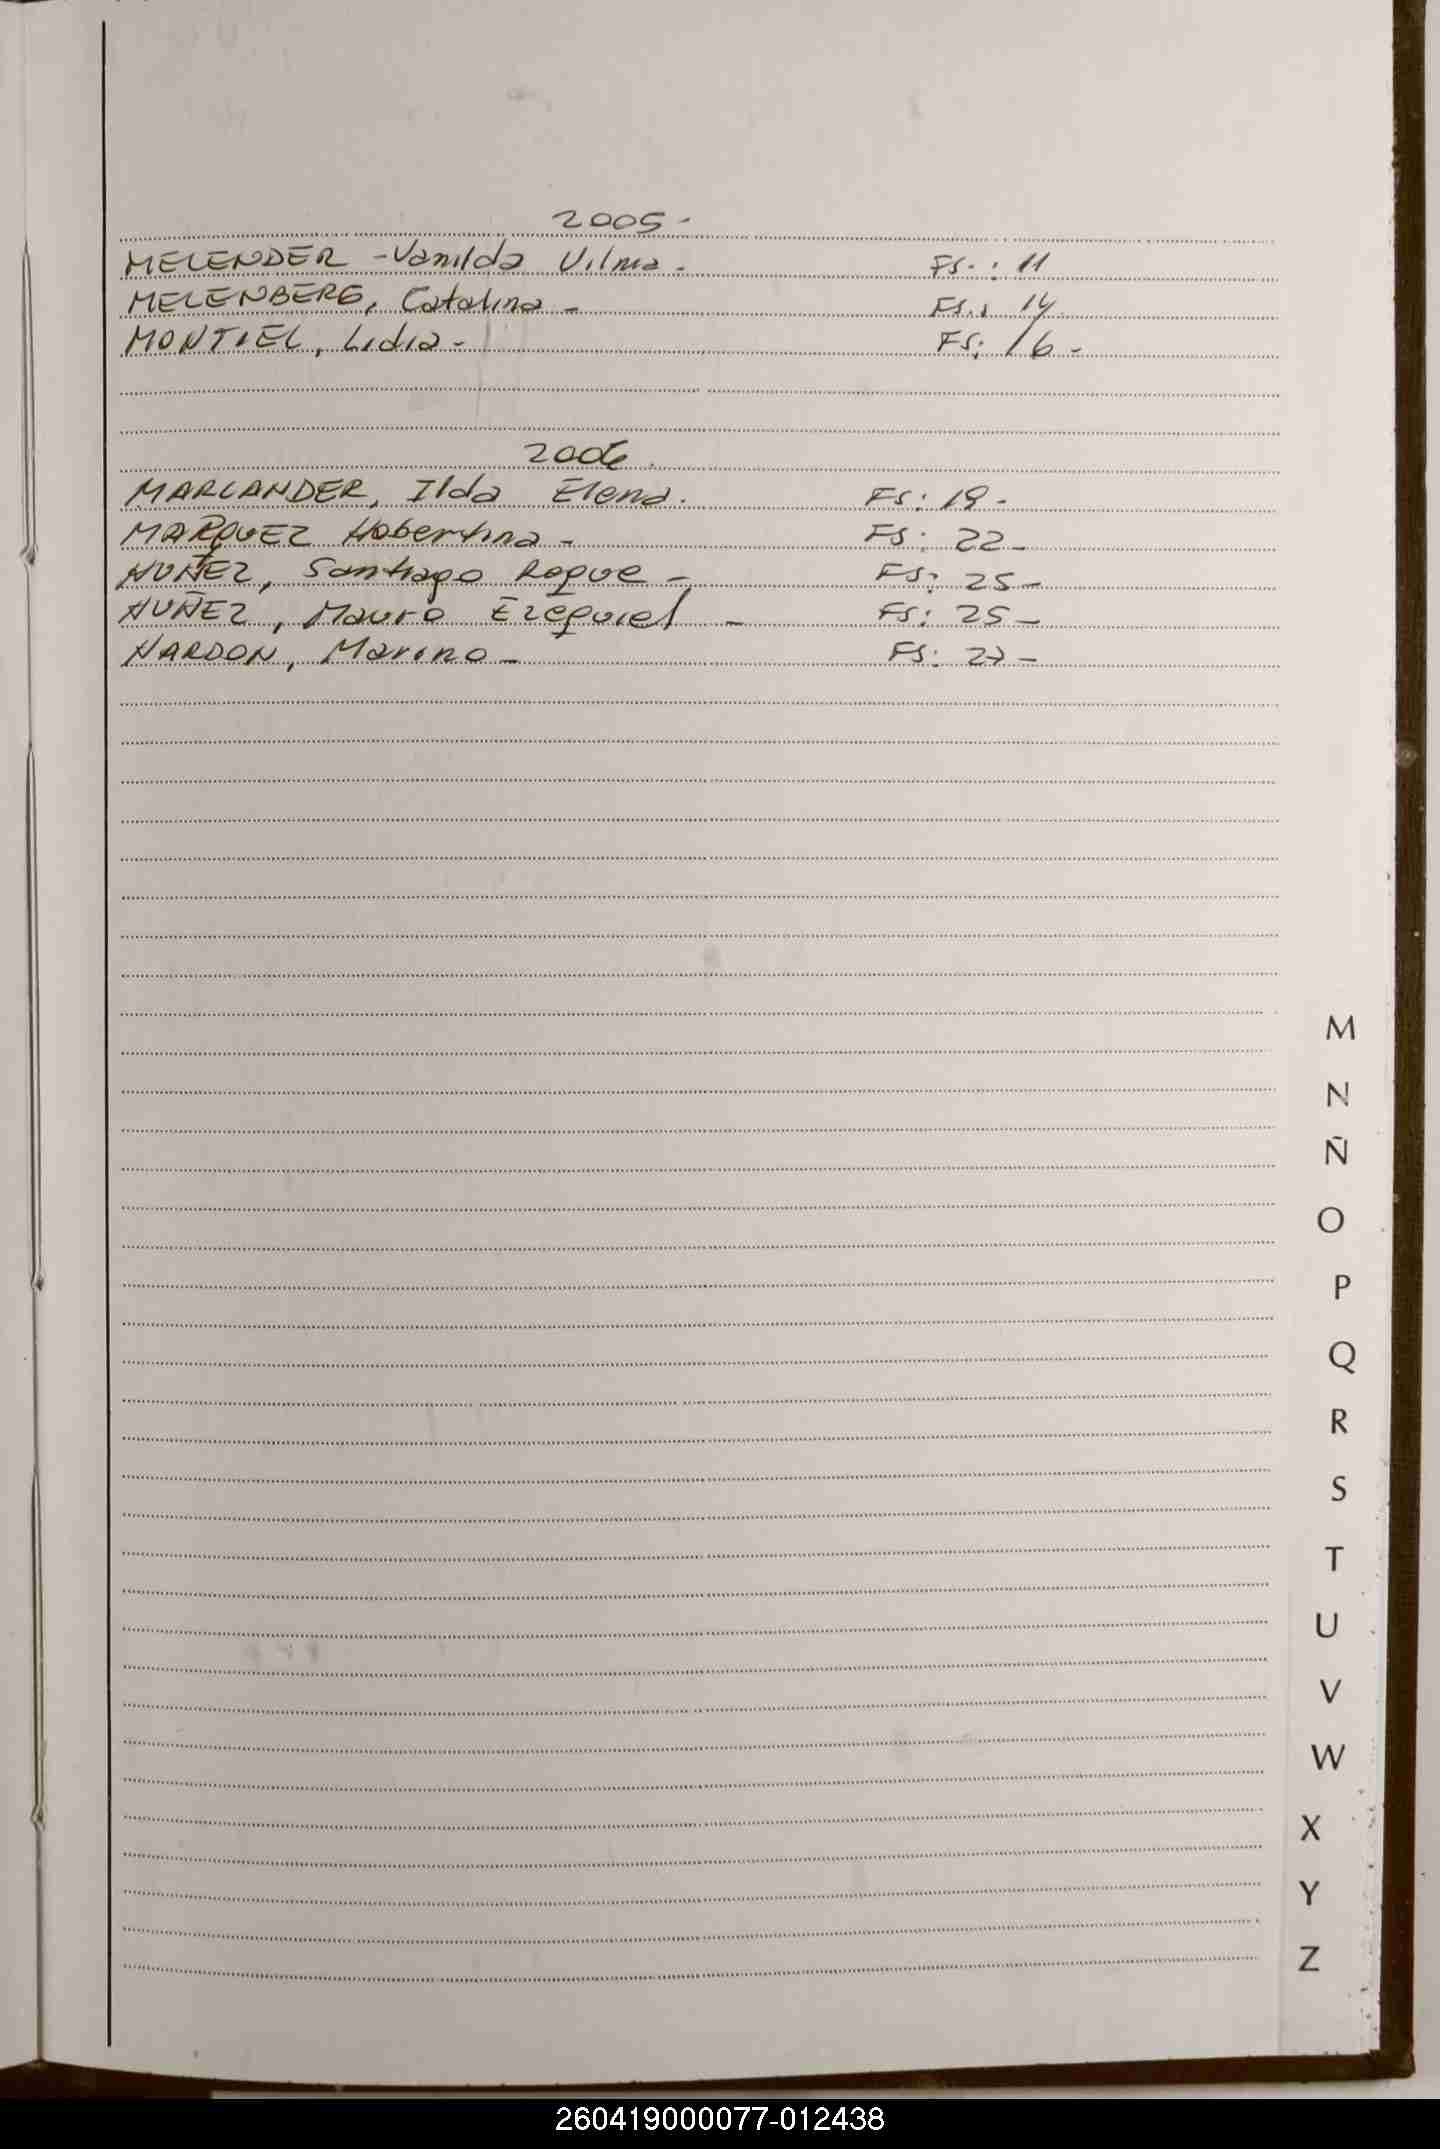 2005-
MELENDER - Vanilda Vilma. Fs.: 11
MELENBERG, Catalina - Fs.: 14
MONTIEL, Lidia - Fs: 16 -
2006.
MARLANDER, Ilda Elena. Fs: 19 -
MARQUEZ Hobertina - Fs: 22 -
NUÑEZ, Santiago Roque - Fs: 25 -
NUÑEZ, Mauro Ezequiel - Fs: 25 -
NARDON, Marino - Fs: 27 -
M
N
Ñ
O
P
Q
R
S
T
U
V
W
X
Y
Z
260419000077-012438